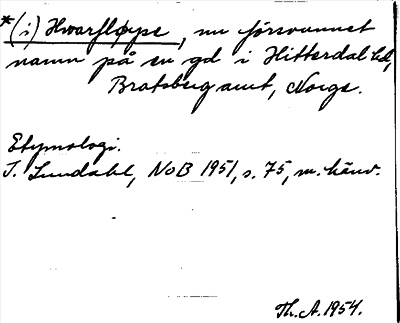 *(i) Hvarfløype, nu försvunnet
namn på en gd i Hitterdal hd,
Bratsberg amt, Norge.
Etymologi.
I. Lundahl, NoB 1951, s. 75, m. hänv.
Th. A. 1954.